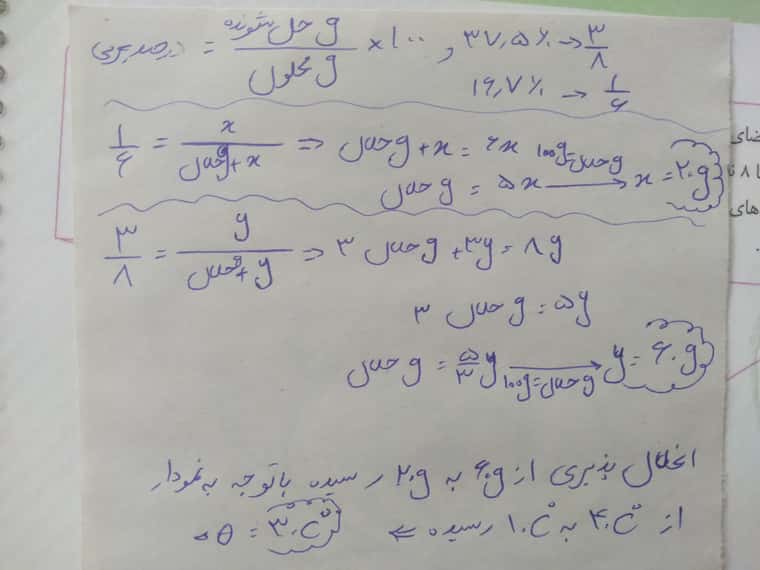 درصد جرمی = g حل شونده / g محلول × ۱۰۰ , ۳۷٫۵٪ → ۳/۸
۱۶٫۷٪ → ۱/۶
۱/۶ = x / (g حلال + x) ⇒ g حلال + x = ۶x
g حلال = ۵x —(g حلال = ۱۰۰g)→ x = ۲۰g
۳/۸ = y / (g حلال + y) ⇒ ۳ g حلال + ۳y = ۸y
۳ g حلال = ۵y
g حلال = ۵/۳ y —(g حلال = ۱۰۰g)→ y = ۶۰g
انحلال پذیری از ۶۰g به ۲۰g رسیده با توجه به نمودار
از ۴۰°C به ۱۰°C رسیده ⇐ Δθ = ۳۰°C
ضای
تا ۸ ا
های